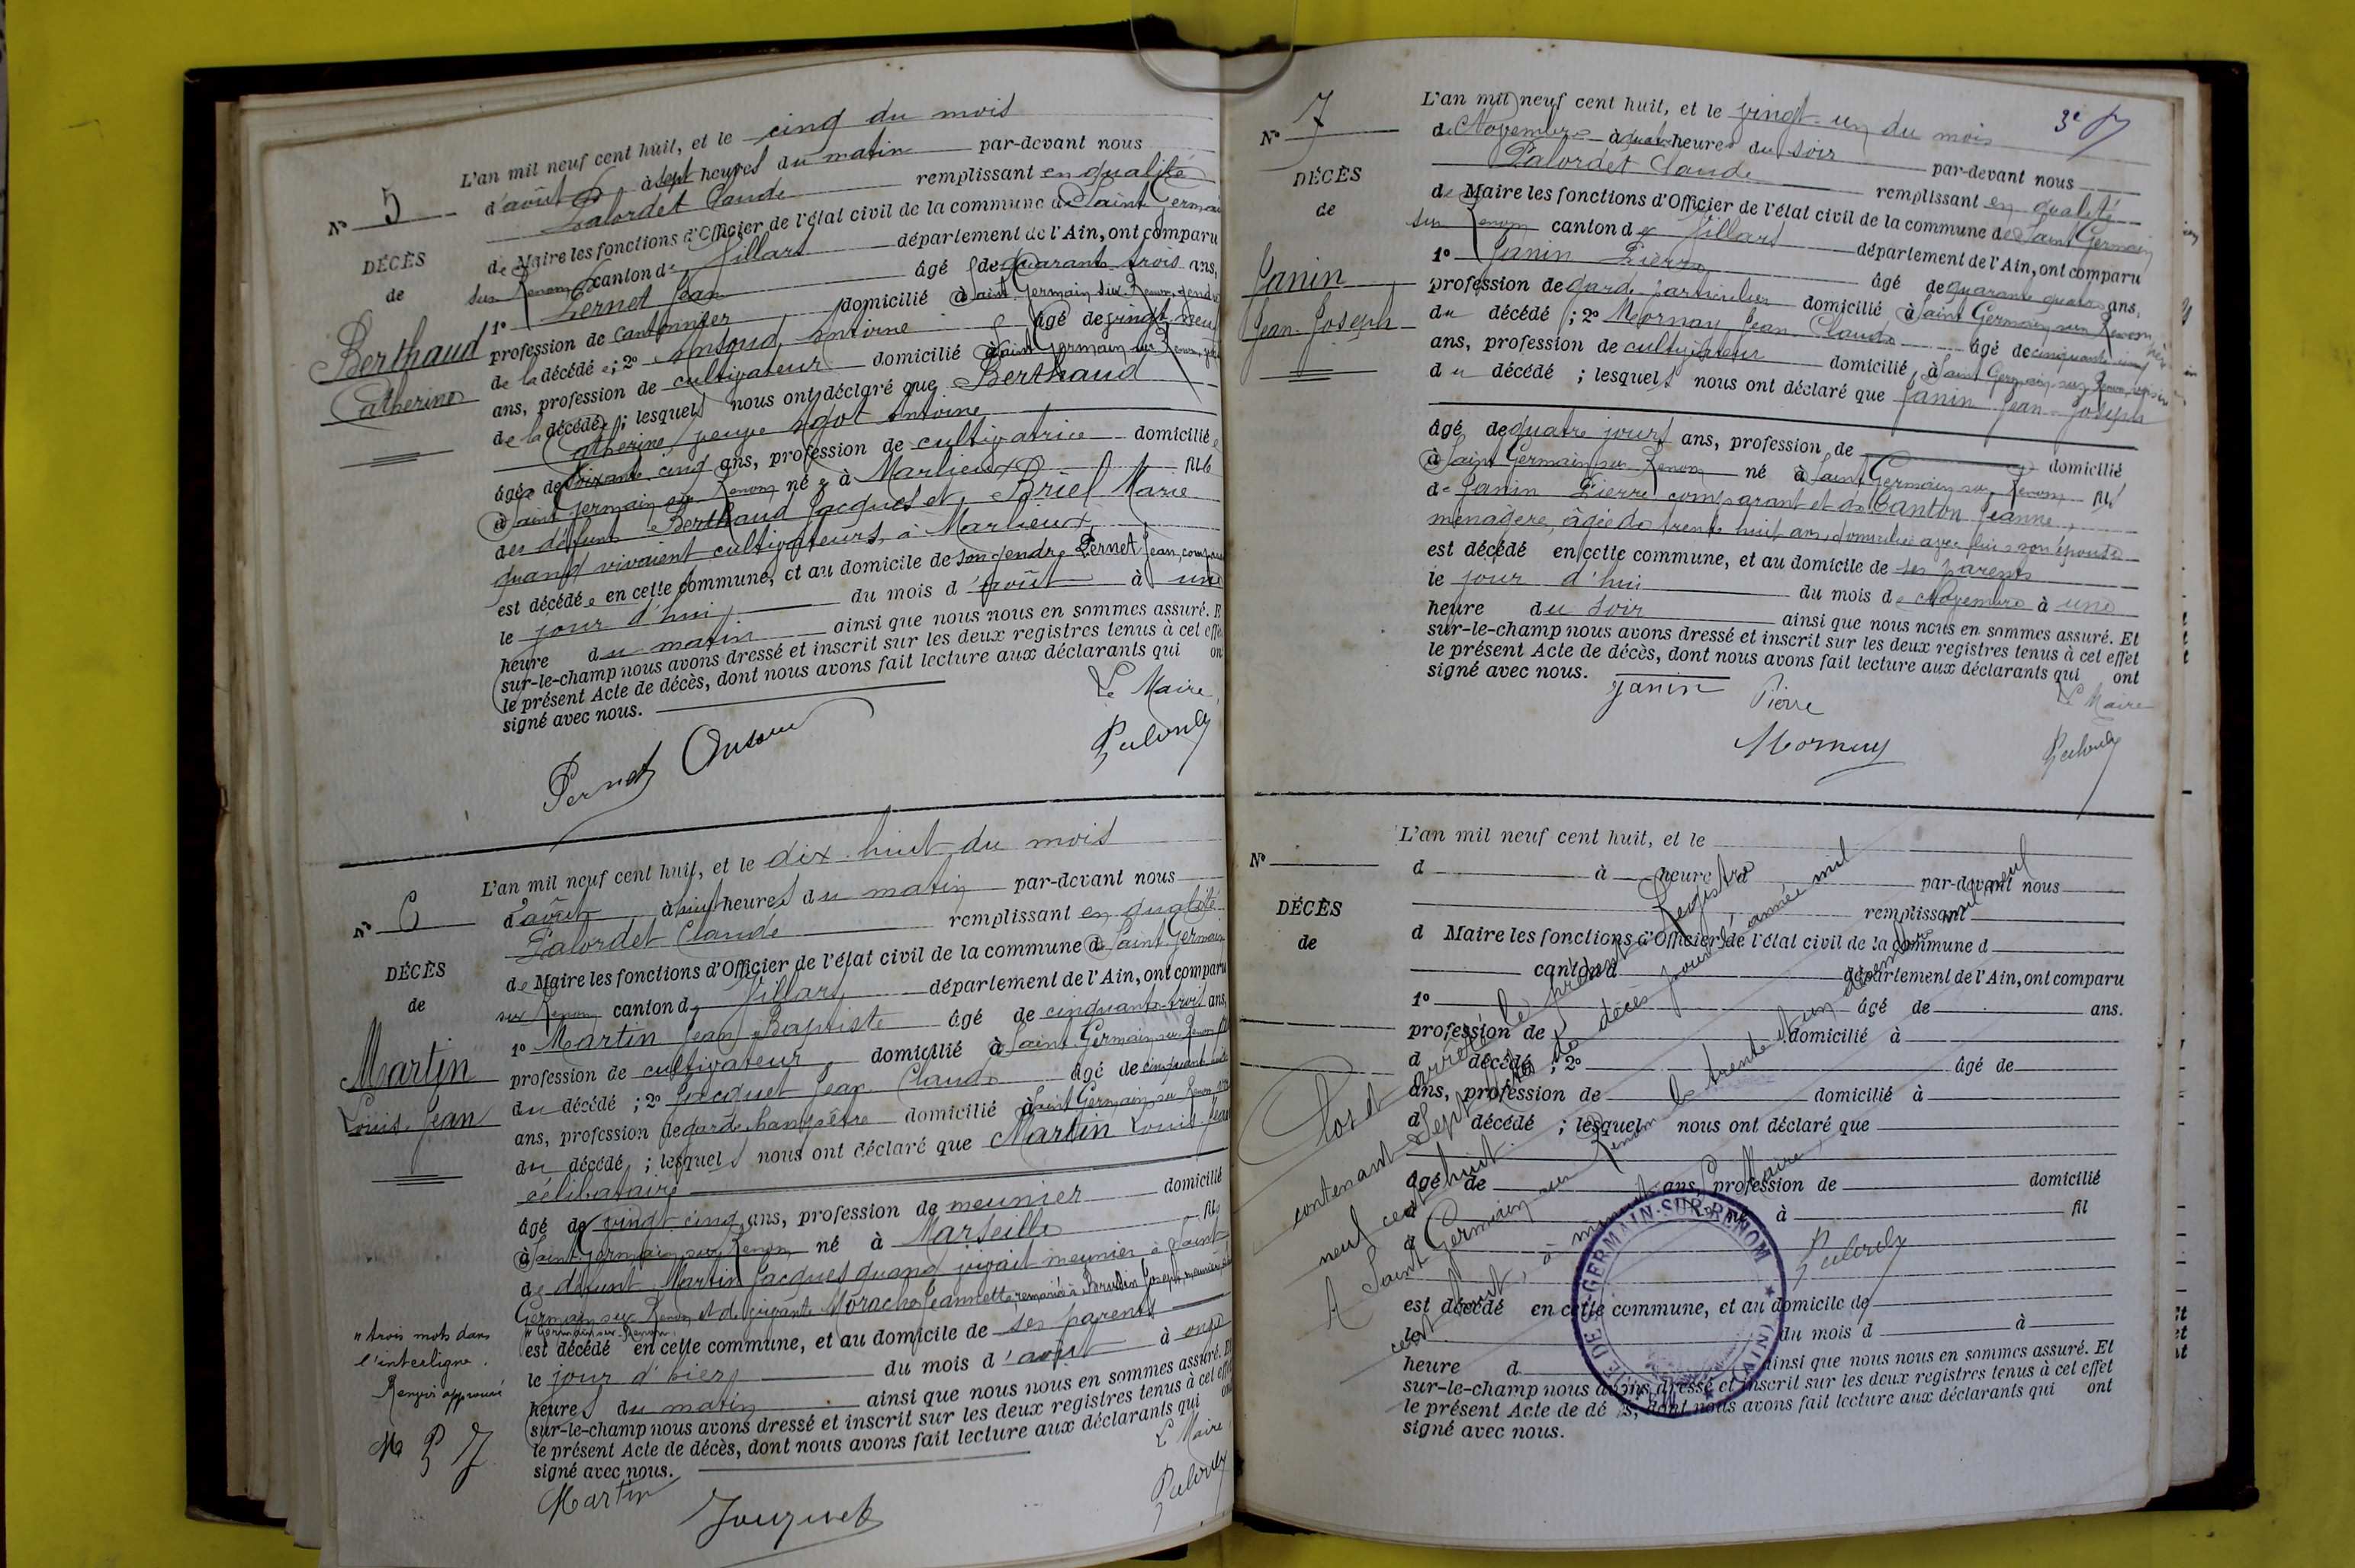 N° 5
DÉCÈS
de
Berthaud
Catherine
L'an mil neuf cent huit, et le cinq du mois
d'août à sept heures du matin par-devant nous
Palordet Claude remplissant en qualité
de Maire les fonctions d'Officier de l'état civil de la commune de Saint Germain
sur Renom canton de Villars département de l'Ain, ont comparu
1° Pernet Jean âgé de quarante trois ans,
profession de cantonnier domicilié à Saint Germain sur Renom, gendre
de la décédée; 2° Ansoud Antoine âgé de vingt neuf
ans, profession de cultivateur domicilié à Saint Germain sur Renom
de la décédée; lesquels nous ont déclaré que Berthaud
Catherine veuve Agot Antoine
âgée de soixante cinq ans, profession de cultivatrice domiciliée
à Saint Germain sur Renom née à Marlieux fille
des défunts Berthaud Jacques et Briel Marie
quand vivaient cultivateurs à Marlieux
est décédée en cette commune, et au domicile de son gendre Pernet Jean,
le jour d'hui du mois d'août à une
heure du matin ainsi que nous nous en sommes assuré. E
sur-le-champ nous avons dressé et inscrit sur les deux registres tenus à cet effe
le présent Acte de décès, dont nous avons fait lecture aux déclarants qui on
signé avec nous.
Le Maire
Pernet
N° 6
DÉCÈS
de
Martin
Louis Jean
L'an mil neuf cent huit, et le dix huit du mois
d'août à huit heures du matin par-devant nous
Palordet Claude remplissant en qualité
de Maire les fonctions d'Officier de l'état civil de la commune de Saint Germain
sur Renom canton de Villars département de l'Ain, ont comparu
1° Martin Jean Baptiste âgé de cinquante trois ans,
profession de cultivateur domicilié à Saint Germain sur Renom
du décédé; 2° Jacquet Jean Claude âgé de cinquante
ans, profession de garde champêtre domicilié à Saint Germain sur Renom
du décédé; lesquels nous ont déclaré que Martin Louis Jean
célibataire
âgé de vingt cinq ans, profession de meunier domicilié
à Saint Germain sur Renom né à Marseille fils
de défunt Martin Jacques quand vivait meunier à Saint
Germain sur Renom et de vivante Morache Jeannette, remariée à Joseph, meunier
Germain sur Renom
est décédé en cette commune, et au domicile de ses parents
le jour d'hier du mois d'août à onze
heures du matin ainsi que nous nous en sommes assuré. E
sur-le-champ nous avons dressé et inscrit sur les deux registres tenus à cet effe
le présent Acte de décès, dont nous avons fait lecture aux déclarants qui on
signé avec nous.
trois mots dans
l'interligne.
Renvoi approuvé
M P J
Le Maire
Martin
N° 7
DÉCÈS
de
Janin
Jean-Joseph
L'an mil neuf cent huit, et le vingt un du mois
de Novembre à quatre heures du soir par-devant nous
Palordet Claude remplissant en qualité
de Maire les fonctions d'Officier de l'état civil de la commune de Saint Germain
sur Renom canton de Villars département de l'Ain, ont comparu
1° Janin Pierre âgé de quarante quatre ans,
profession de garde particulier domicilié à Saint Germain sur Renom, père
du décédé; 2° Mornay Jean Claude âgé de cinquante
ans, profession de cultivateur domicilié à Saint Germain sur Renom, voisin
du décédé; lesquels nous ont déclaré que Janin Jean-Joseph
âgé de quatre jours ans, profession de domicilié
à Saint Germain sur Renom né à Saint Germain sur Renom fils
de Janin Pierre comparant et de Canton Jeanne,
ménagère, âgée de trente huit ans, domiciliée avec lui son épouse
est décédé en cette commune, et au domicile de ses parents
le jour d'hui du mois de Novembre à une
heure du soir ainsi que nous nous en sommes assuré. Et
sur-le-champ nous avons dressé et inscrit sur les deux registres tenus à cet effet
le présent Acte de décès, dont nous avons fait lecture aux déclarants qui ont
signé avec nous.
Janin Pierre
Le Maire
Mornay
N°
DÉCÈS
de
L'an mil neuf cent huit, et le
d à heure d par-devant nous
remplissant
d Maire les fonctions d'Officier de l'état civil de la commune d
canton d département de l'Ain, ont comparu
1° âgé de ans.
profession de domicilié à
d décédé; 2° âgé de
ans, profession de domicilié à
d décédé; lesquel nous ont déclaré que
âgé de ans, profession de domicilié
à né à fil
d
est décédé en cette commune, et au domicile de
le du mois d à
heure d ainsi que nous nous en sommes assuré. Et
sur-le-champ nous avons dressé et inscrit sur les deux registres tenus à cet effet
le présent Acte de décès, dont nous avons fait lecture aux déclarants qui ont
signé avec nous.
Clos et arrêté le présent Registre
contenant Sept actes de décès pour l'année mil
neuf cent huit
A Saint Germain sur Renom le trente et un décembre mil neuf
cent huit, à minuit
Le Maire